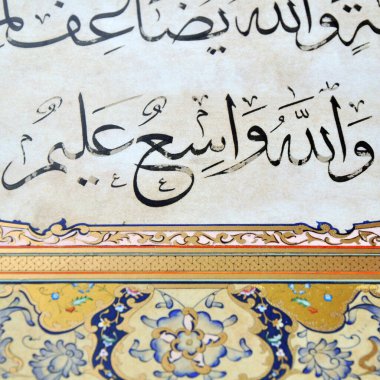 ةٍ وَاللهُ يُضَاعِفُ
وَاللّٰهُ وَاسِعٌ عَلِيمٌ